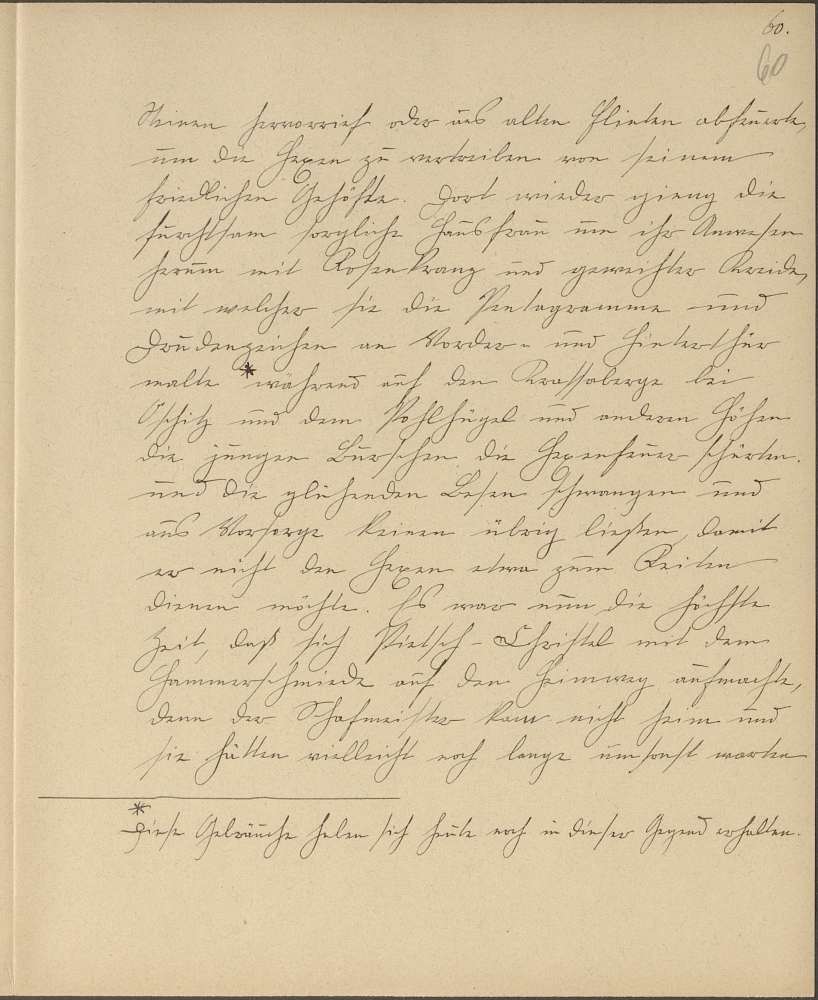 60.
60
Steinen hervorrief oder aus alten Flinten abfeuerte,
um die Hexen zu vertreiben von seinem
friedlichen Gehöfte. Dort wieder gieng die
furchtsam sorgliche Hausfrau um ihr Anwesen
herum mit Rosenkranz und geweihter Kreide,
mit welcher sie die Pentagramme und
Drudenzeichen an Vorder- und Hinterthür
malte * während auf den Krassaberge bei
Oschitz und dem Pohlhügel und anderen Höhen
die jungen Burschen die Hexenfeuer schürten.
und die glühenden Besen schwangen und
aus Vorsorge keinen übrig ließen, damit
er nicht den Hexen etwa zum Reiten
dienen möchte. Es war nun die höchste
Zeit, daß sich Pietsch-Christel mit dem
Hammerschmiede auf den Heimweg aufmachte,
denn der Schafmeister kam nicht heim und
sie hätten vielleicht noch lange umsonst warten
*
Diese Gebräuche haben sich heute noch in dieser Gegend erhalten.